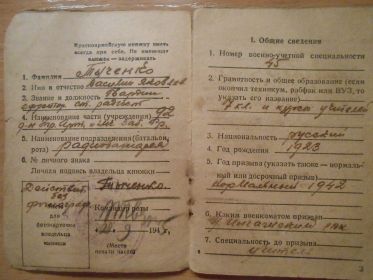 Красноармейскую книжку иметь
всегда при себе. Не имеющих
книжек — задерживать
1. Фамилия Тюченко
2. Имя и отчество Василий Яковлев.
3. Звание и должность
ст. радист
4. Наименование части (учреждения) 92
5. Наименование подразделения (батальон,
рота) радиобатарея
6. № личного знака
Личная подпись владельца книжки
Тюченко
Действит.
без
фотограф.
для
фотокарточки
владельца
книжки
Командир роты
194 г.
(Место
печати части)
I. Общие сведения
1. Номер военно-учетной специальности
45
2. Грамотность и общее образование (если
окончил техникум, рабфак или ВУЗ, то
указать его название)
7 кл. и курсы учителей
3. Национальность русский
4. Год рождения 1923
5. Год призыва (указать также — нормаль-
ный или досрочный призыв)
нормальный 1942
6. Каким военкоматом призван
рвк
7. Специальность до призыва
учитель
3